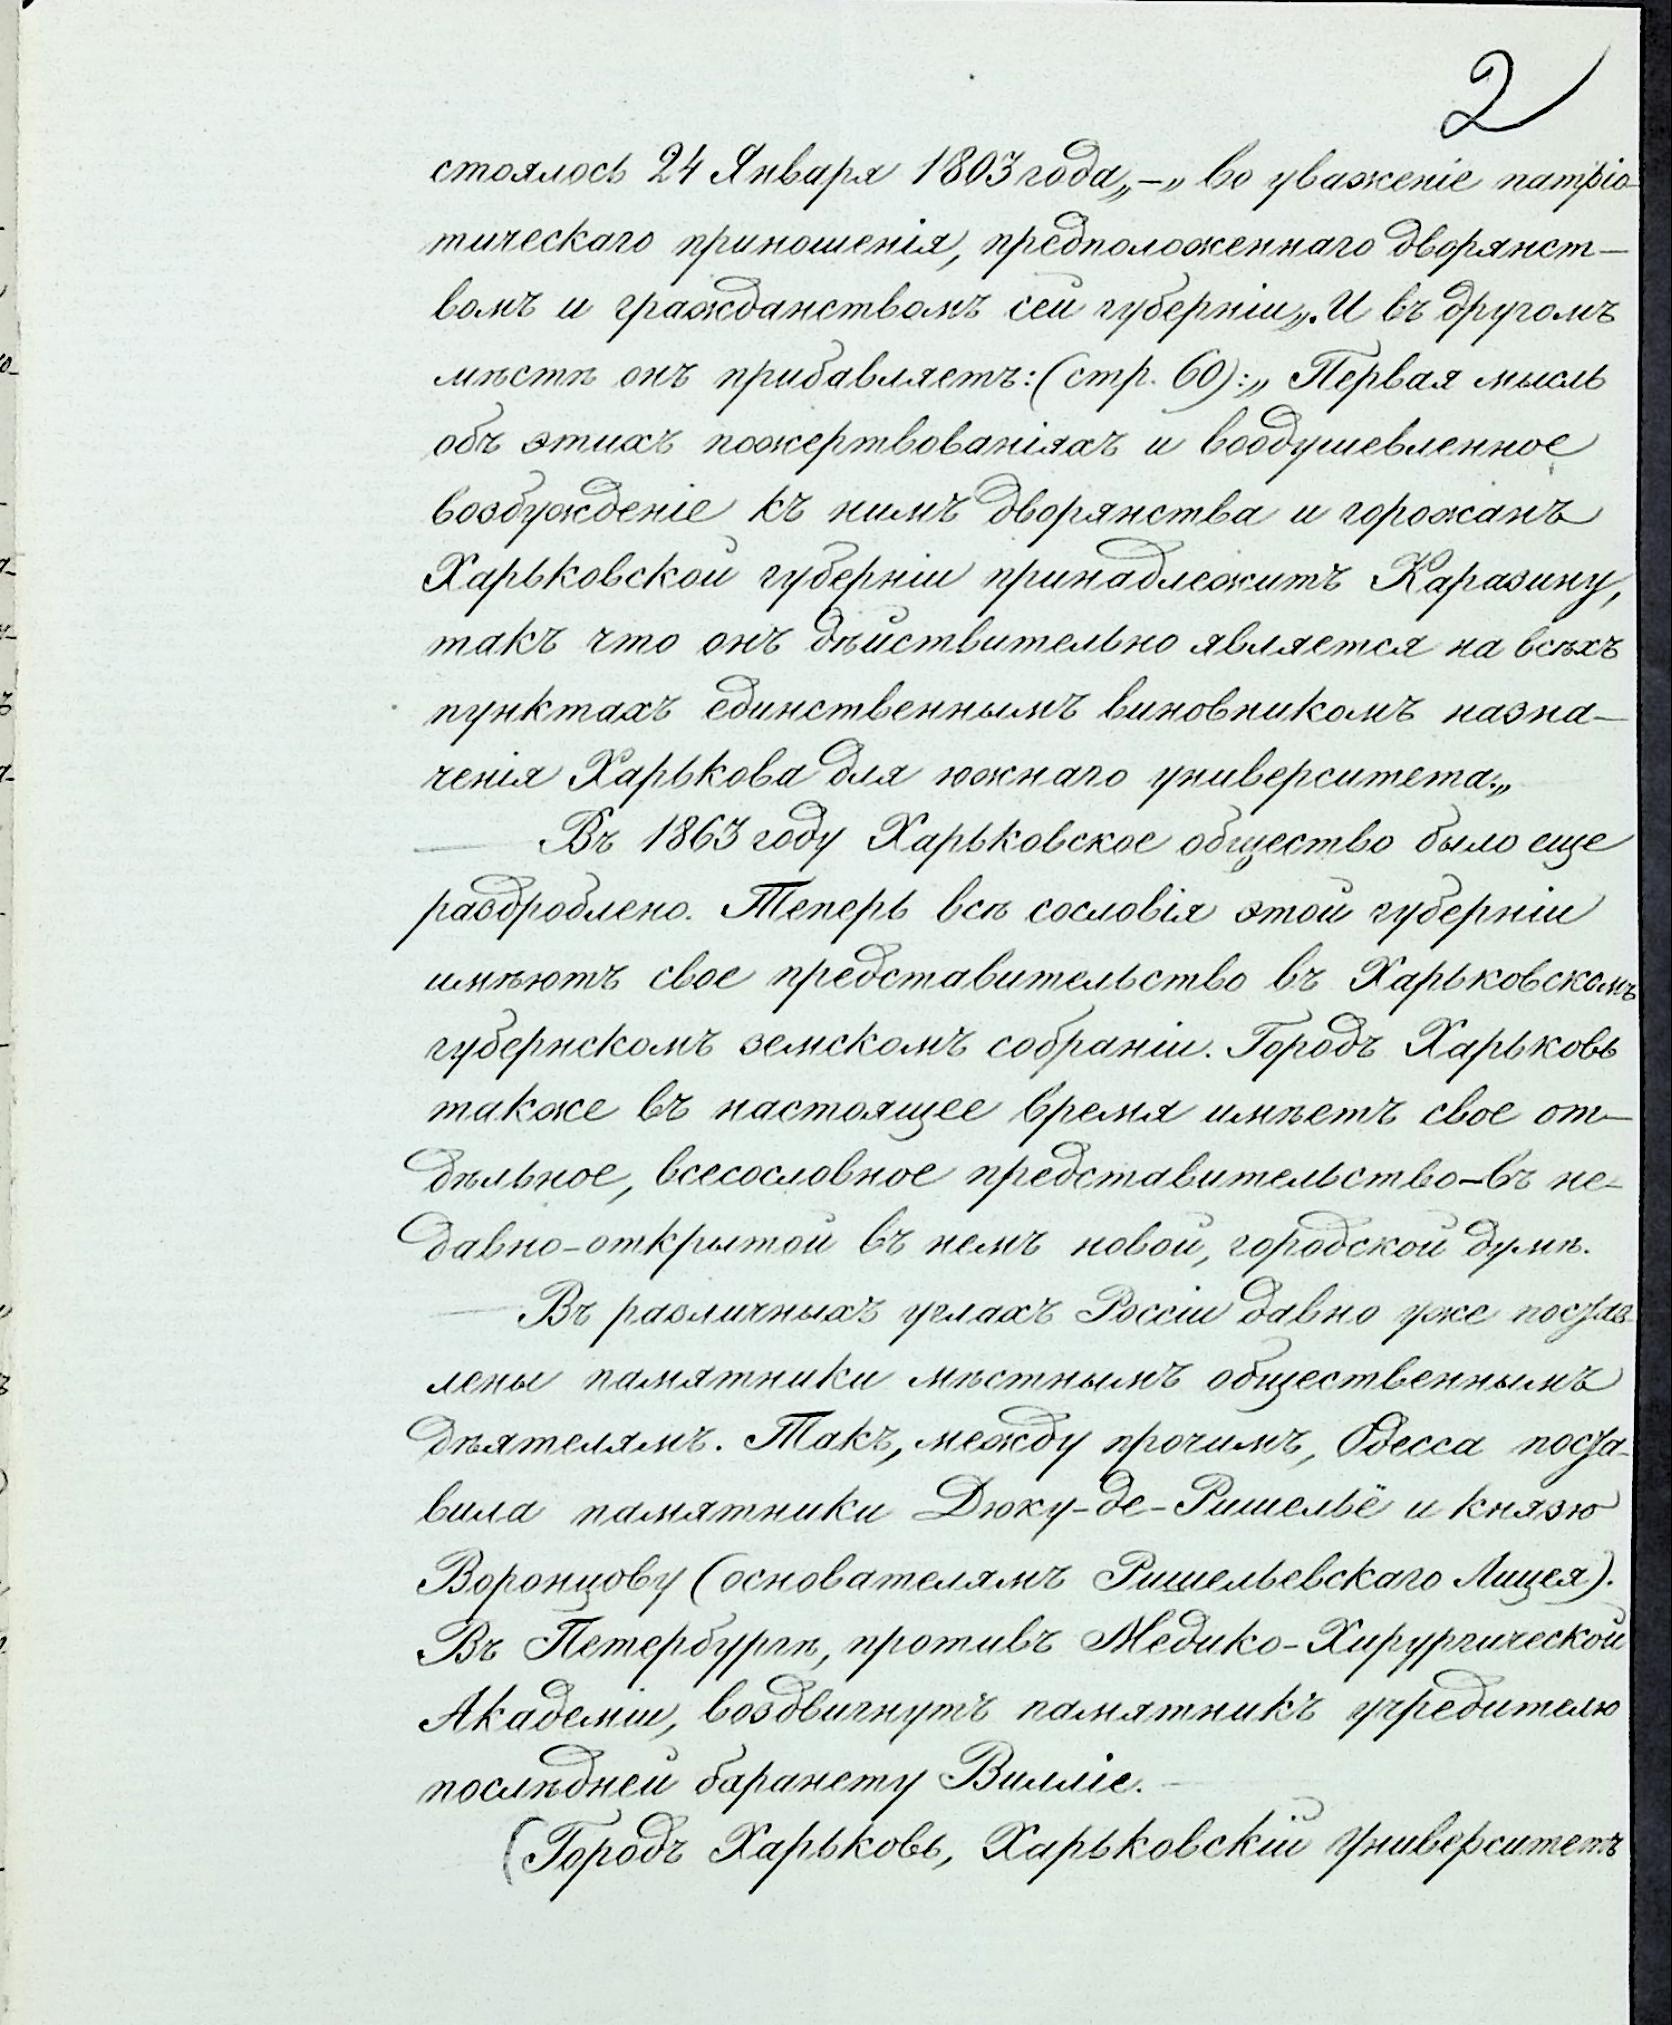 2
стоялось 24 Января 1803 года„—„ во уваженіе патріо-
тическаго приношенія, предположеннаго дворянст-
вомъ и гражданствомъ сей губерніи„. И въ другомъ
мѣстѣ онъ прибавляетъ: (стр. 60):„ Первая мысль
объ этихъ пожертвованіяхъ и воодушевленное
возбужденіе къ нимъ дворянства и горожанъ
Харьковской губерніи принадлежитъ Каразину,
такъ что онъ дѣйствительно является на всѣхъ
пунктахъ единственнымъ виновникомъ назна-
ченія Харькова для южнаго университета.„
Въ 1863 году Харьковское общество было еще
раздроблено. Теперь всѣ сословія этой губерніи
имѣютъ свое представительство въ Харьковскомъ
губернскомъ земскомъ собраніи. Городъ Харьковъ
также въ настоящее время имѣетъ свое от-
дѣльное, всесословное представительство—въ не-
давно-открытой въ немъ новой, городской думѣ.
Въ различныхъ углахъ Россіи давно уже постав-
лены памятники мѣстнымъ общественнымъ
дѣятелямъ. Такъ, между прочимъ, Одесса поста-
вила памятники Дюку-де-Ришельё и князю
Воронцову (основателямъ Ришельевскаго Лицея).
Въ Петербургѣ, противъ Медико-Хирургической
Академіи, воздвигнутъ памятникъ учредителю
послѣдней баранету Вилліе.
(Городъ Харьковъ, Харьковскій Университетъ